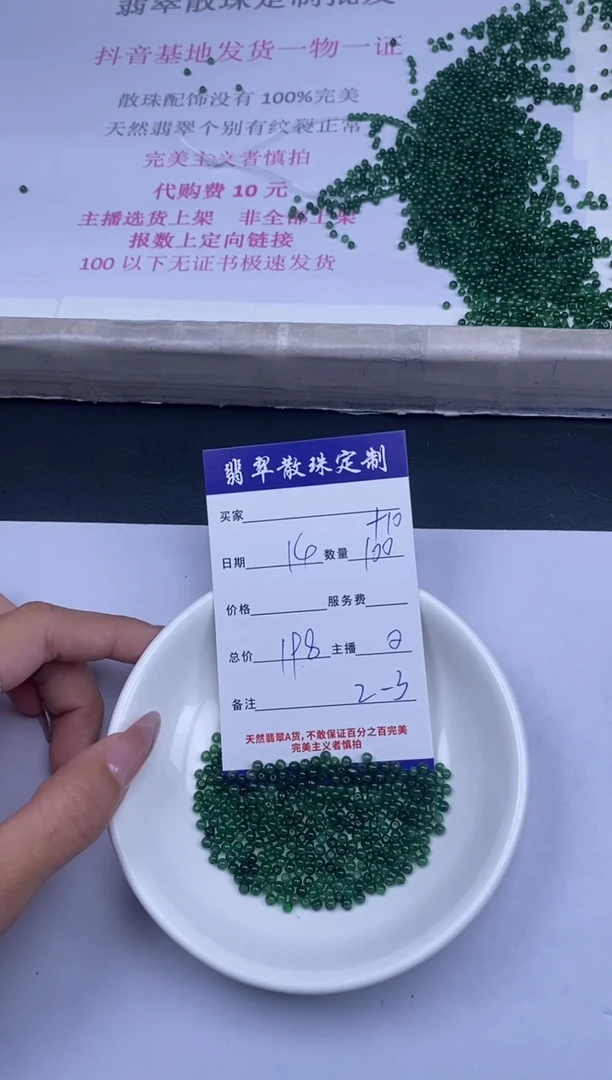 翡翠散珠定制批发
抖音基地发货一物一证
散珠配饰没有 100%完美
天然翡翠个别有纹裂正常
完美主义者慎拍
代购费 10 元
主播选货上架 非全部上架
报数上定向链接
100 以下无证书极速发货
翡翠散珠定制
买家 +10
日期 14 数量 100
价格 服务费
总价 198 主播 2
备注 2-3
天然翡翠A货，不敢保证百分之百完美
完美主义者慎拍